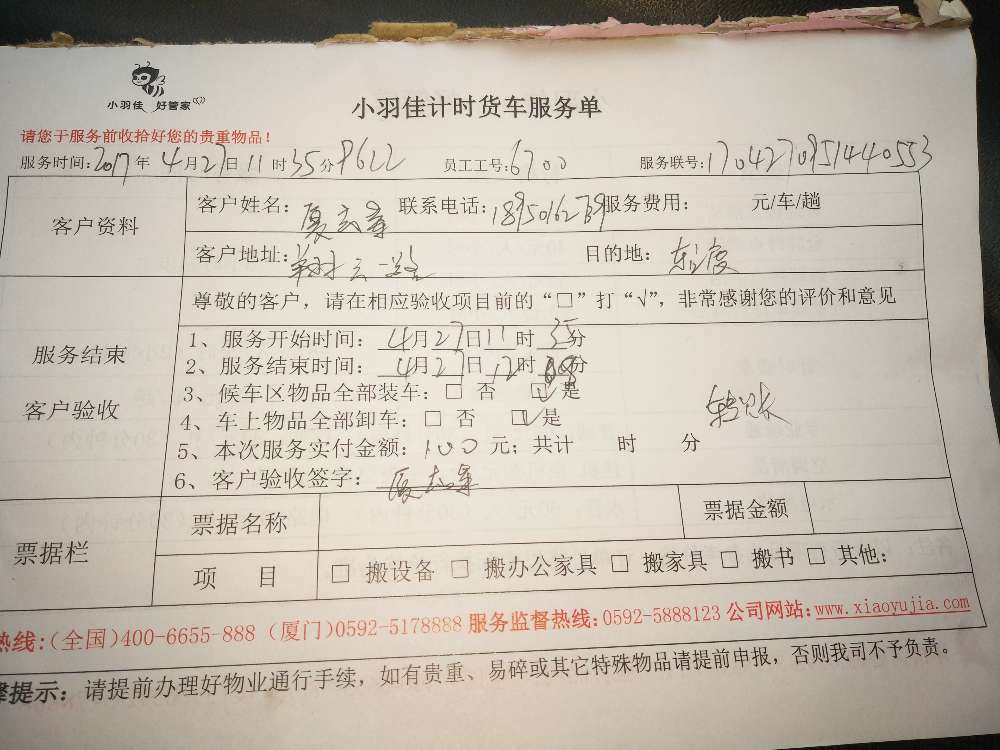 小羽佳 好管家
小羽佳计时货车服务单
请您于服务前收拾好您的贵重物品！
服务时间：2017年 4月27日 11时35分 P622 员工工号：6700 服务联号：1704270951440553
客户资料
客户姓名： 联系电话： 服务费用： 元/车/趟
客户地址：翔云一路 目的地：东渡
服务结束
客户验收
尊敬的客户，请在相应验收项目前的“□”打“√”，非常感谢您的评价和意见
1、服务开始时间：4月27日11时35分
2、服务结束时间：4月27日12时 分
3、候车区物品全部装车：□ 否 ☑ 是
4、车上物品全部卸车：□ 否 ☑ 是
转账
5、本次服务实付金额：100元；共计 时 分
6、客户验收签字：
票据栏
票据名称 票据金额
项 目 □ 搬设备 □ 搬办公家具 □ 搬家具 □ 搬书 □ 其他：
热线：（全国）400-6655-888（厦门）0592-5178888 服务监督热线：0592-5888123 公司网站：www.xiaoyujia.com
提示：请提前办理好物业通行手续，如有贵重、易碎或其它特殊物品请提前申报，否则我司不予负责。